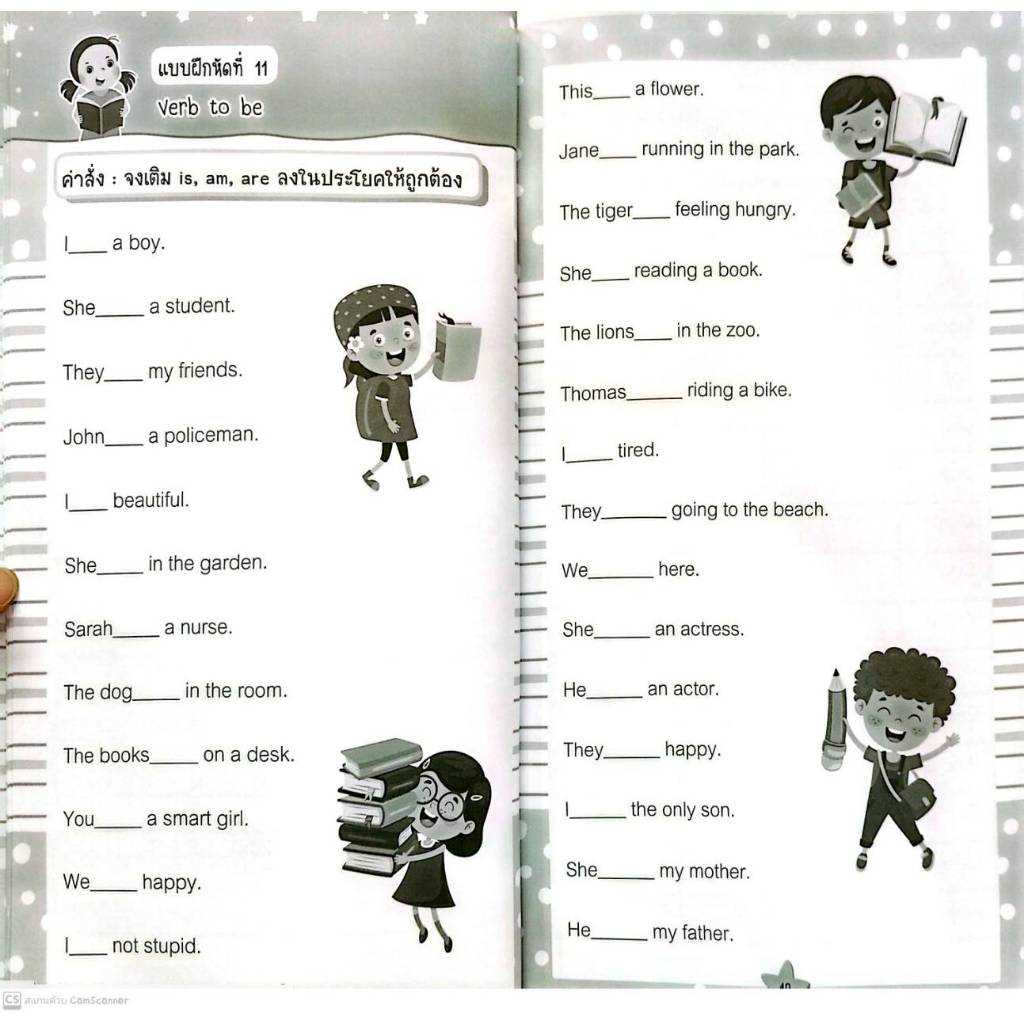 แบบฝึกหัดที่ 11
Verb to be
คำสั่ง : จงเติม is, am, are ลงในประโยคให้ถูกต้อง
I____ a boy.
She_____ a student.
They____ my friends.
John____ a policeman.
I____ beautiful.
She_____ in the garden.
Sarah_____ a nurse.
The dog_____ in the room.
The books_____ on a desk.
You_____ a smart girl.
We_____ happy.
I____ not stupid.
This____ a flower.
Jane____ running in the park.
The tiger____ feeling hungry.
She____ reading a book.
The lions____ in the zoo.
Thomas______ riding a bike.
I_____ tired.
They_______ going to the beach.
We_______ here.
She______ an actress.
He______ an actor.
They______ happy.
I______ the only son.
She______ my mother.
He______ my father.
CS สแกนด้วย CamScanner